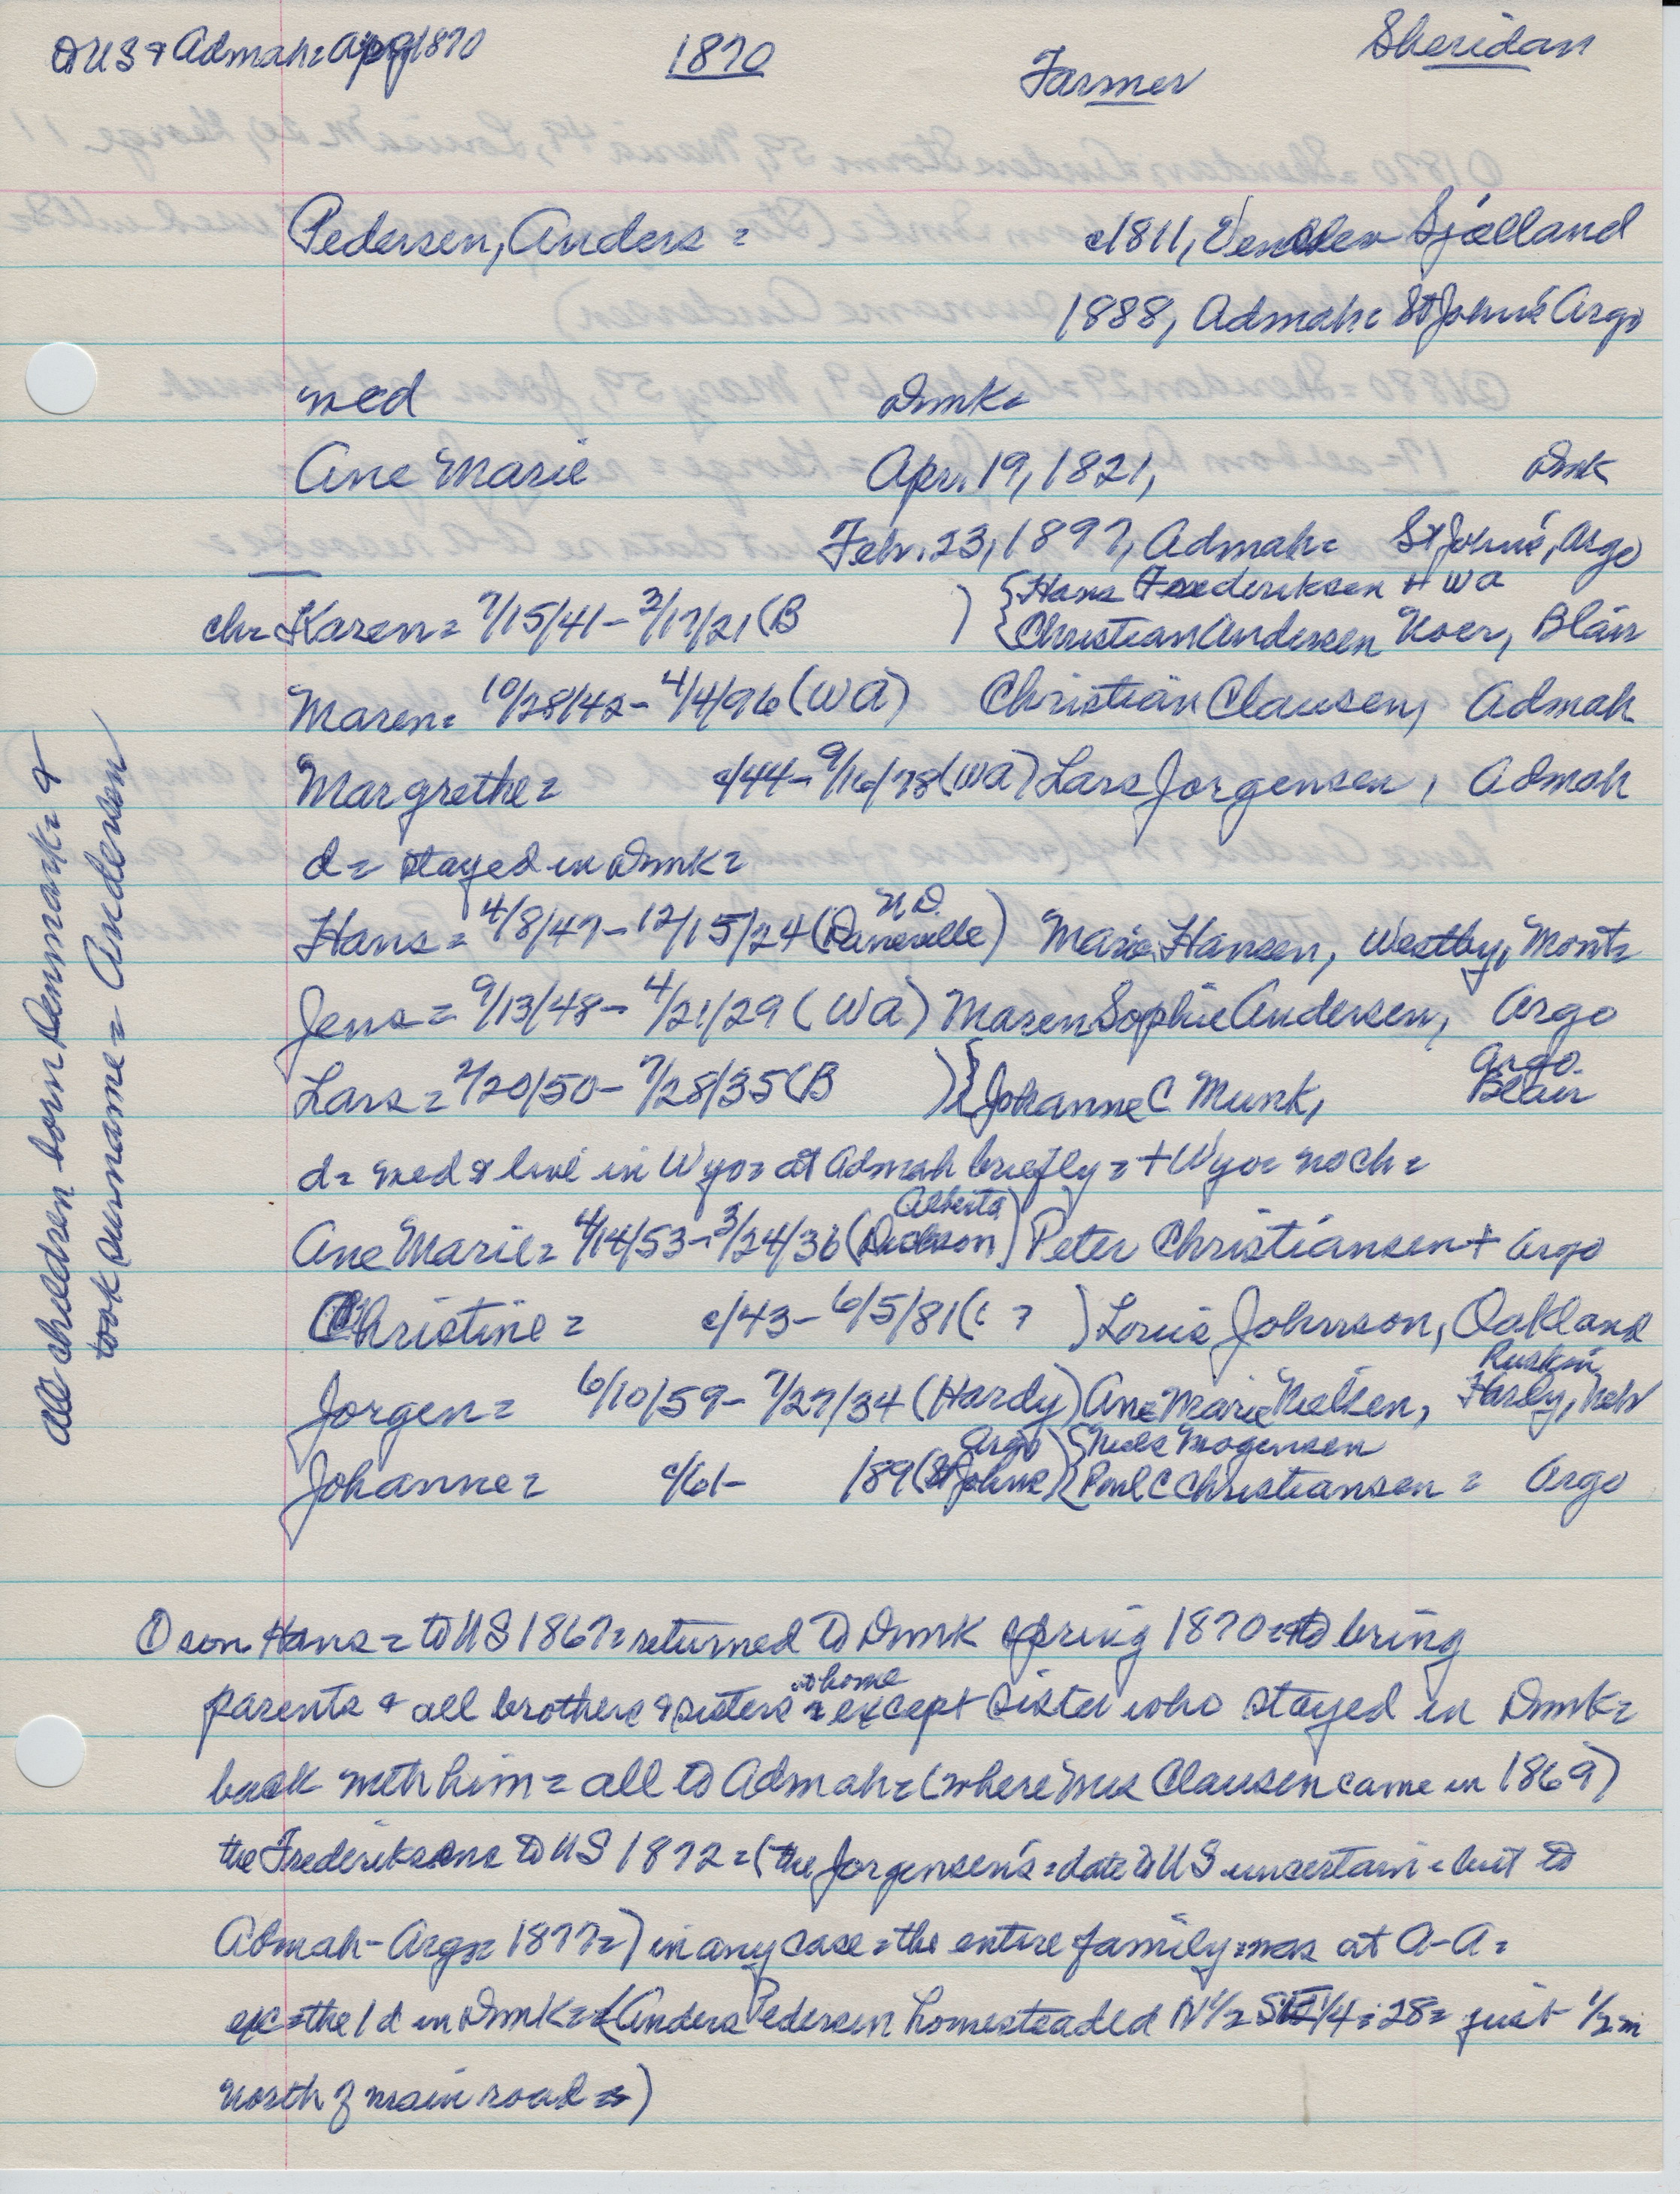 US & Admah = 1870
1870
Farmer
Sheridan
Pedersen, Anders = c1811, Sjælland
1888, Admah = St John's Argo
med Dmk =
Ane Marie Apr. 19, 1821, Dmk
Feb. 23, 1897, Admah = St John's, Argo
{Hans Frederiksen + WA
ch = Karen = 7/15/41 - 3/17/21 (B ) {Christian Andersen Koer, Blair
Maren = 10/28/42 - 4/4/96 (WA) Christian Clausen, Admah
Margrethe = c/44 - 9/16/78 (WA) Lars Jorgensen, Admah
d = stayed in Dmk =
N.D.
Hans = 4/8/47 - 12/15/24 (Daneville) Marie Hansen, Westby, Mont =
Jens = 9/13/48 - 4/21/29 (WA) Maren Sophie Andersen, Argo
Argo
Lars = 2/20/50 - 7/28/35 (B ) { Johanne C Munk, Blair
d = med & live in Wyo = at Admah briefly = + Wyo = no ch =
Alberta
Ane Marie = 4/14/53 - 3/24/36 (Dickson) Peter Christiansen + Argo
Christine = c/43 - 6/5/81 ( ? ) Louis Johnson, Oakland
Ruskin
Jorgen = 6/10/59 - 7/27/34 (Hardy) Ane Marie Nielsen, Hardy, Neb
Argo {Niels Mogensen
Johanne = c/61 - /89 (St Johns) {Poul C Christiansen = Argo
All children born Denmark = &
took surname = Andersen
① son Hans = to US 1867 = returned to Dmk spring 1870 = to bring
home
parents & all brothers & sisters = except sister who stayed in Dmk =
back with him = all to Admah = (where Mrs Clausen came in 1869)
the Frederiksens to US 1872 = (the Jorgensen's = date to US uncertain = but to
Admah - Argo = 1877 =) in any case = the entire family = was at A-A =
exc = the 1 d in Dmk = = (Anders Pedersen homesteaded N 1/2 SE 1/4 = 28 = just 1/2 m
north of main road =)